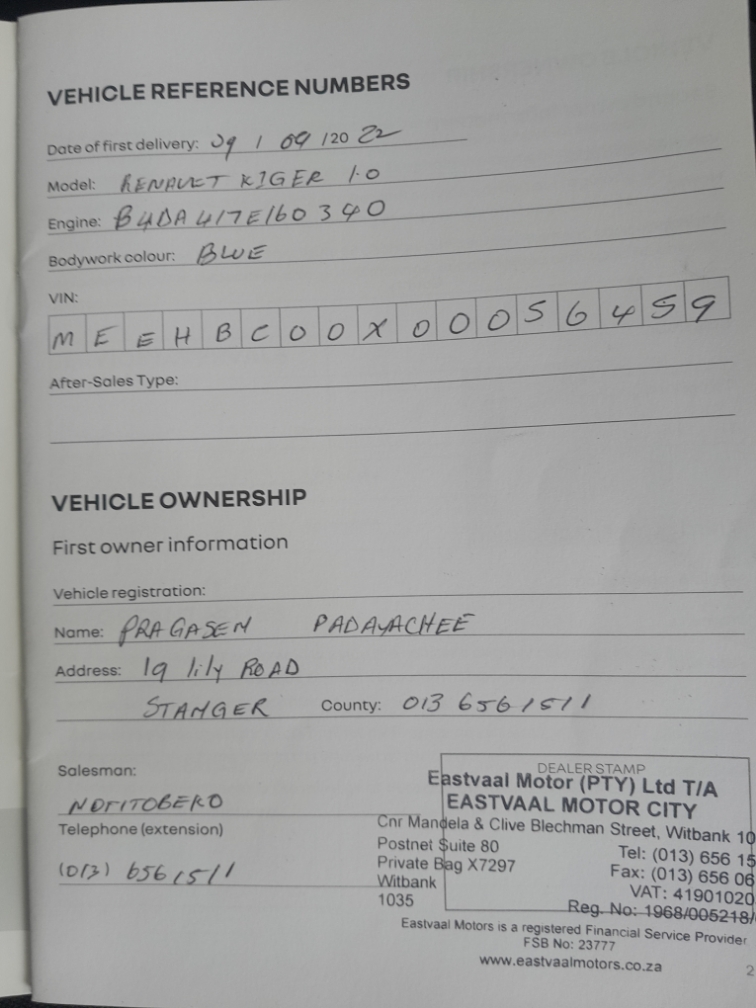 VEHICLE REFERENCE NUMBERS
Date of first delivery: 09 / 09 /20 22
Model: RENAULT KIGER 1.0
Engine: B4DA417E160340
Bodywork colour: BLUE
VIN:
M E E H B C 0 0 X 0 0 0 5 6 4 5 9
After-Sales Type:
VEHICLE OWNERSHIP
First owner information
Vehicle registration:
Name: PRAGASEN PADAYACHEE
Address: 19 lily ROAD
STANGER County: 013 6561511
Salesman:
NDFITOBEKO
Telephone (extension)
(013) 6561511
DEALER STAMP
Eastvaal Motor (PTY) Ltd T/A
EASTVAAL MOTOR CITY
Cnr Mandela & Clive Blechman Street, Witbank 10
Postnet Suite 80 Tel: (013) 656 15
Private Bag X7297 Fax: (013) 656 06
Witbank VAT: 41901020
1035 Reg. No: 1968/005218/
Eastvaal Motors is a registered Financial Service Provider
FSB No: 23777
www.eastvaalmotors.co.za
2